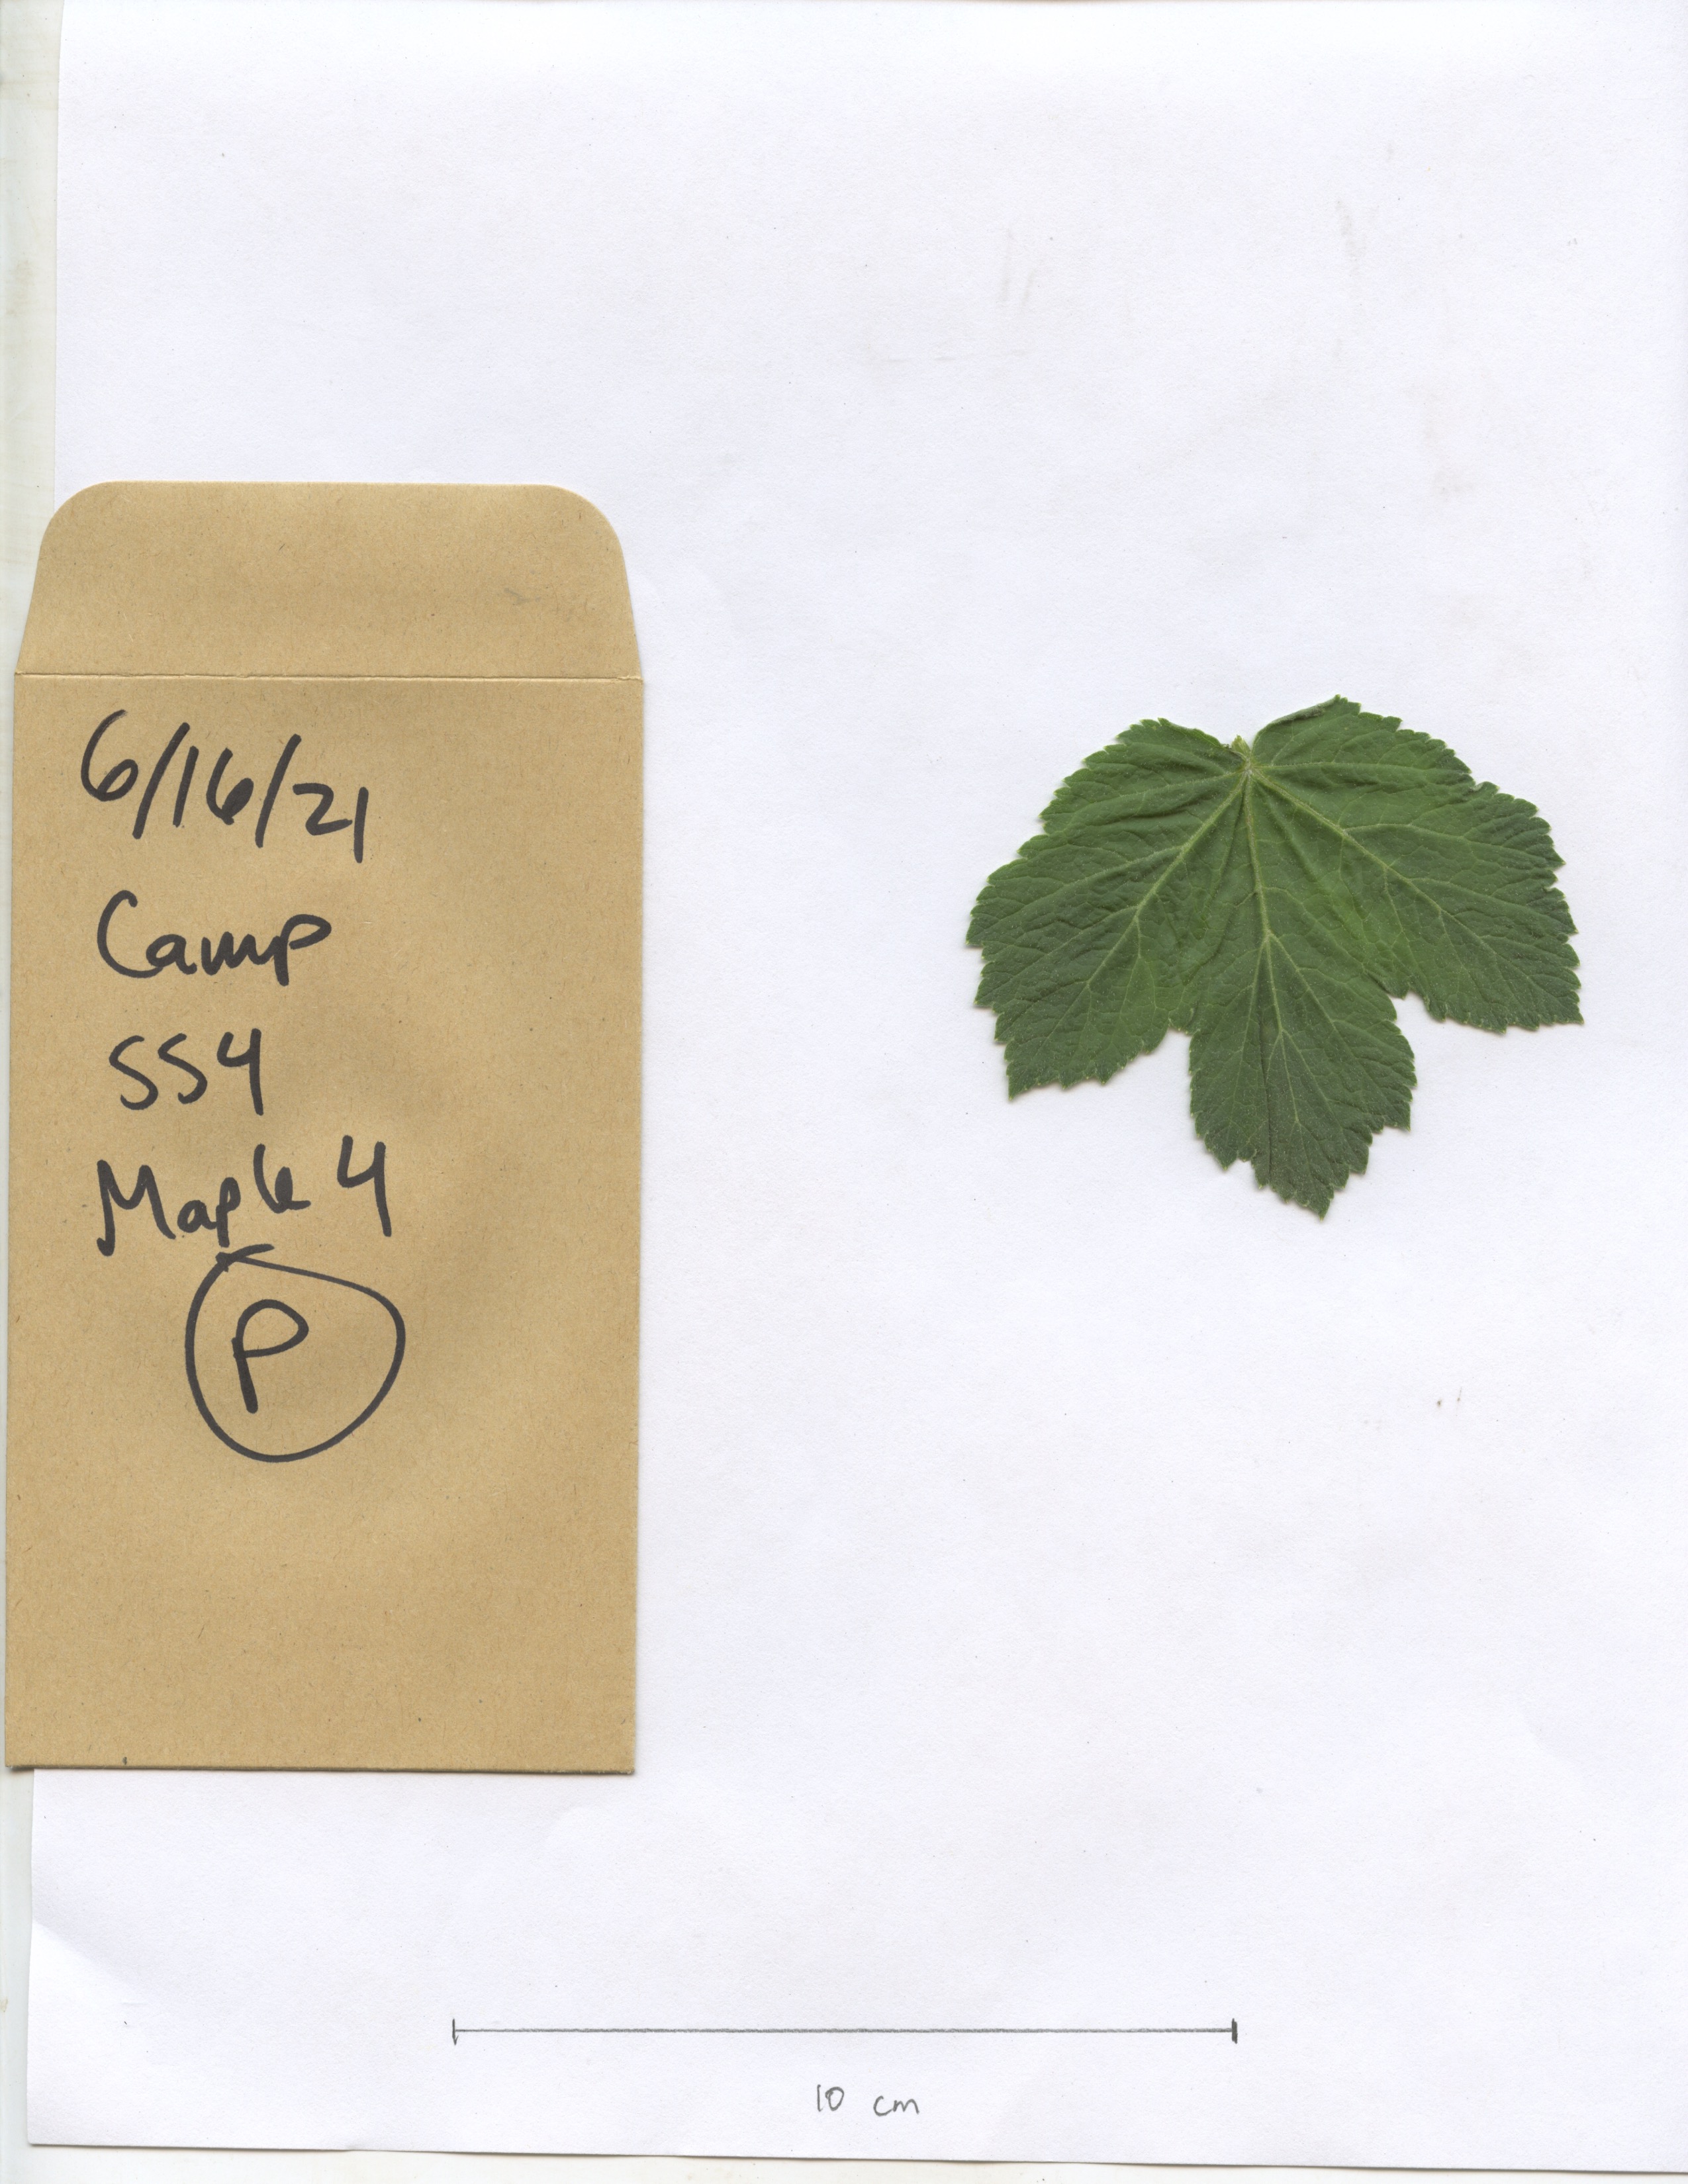 6/16/21
Camp
SS4
Maple 4
P
10 cm